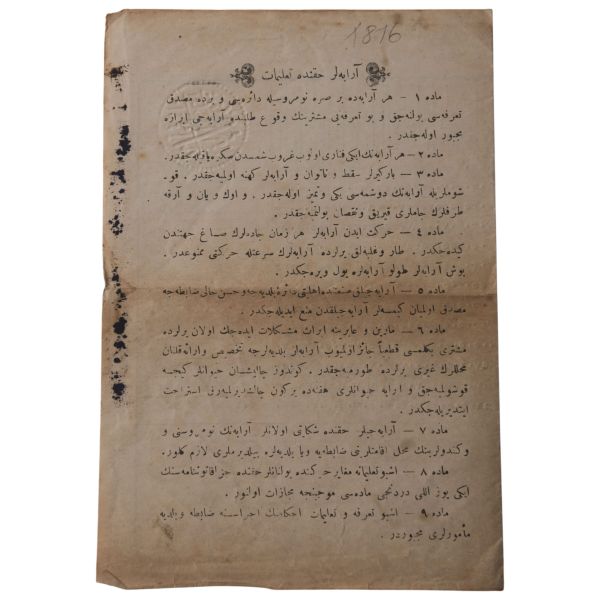 1816
آرابه‌لر حقنده تعلیمات
ماده ۱ — هر آرابه‌ده بر صره نومروسیله دائره‌سی و برده مصدق
تعرفه‌سی بولنه‌جق و بو تعرفه‌یی مشترینك وقوع طلبنده آرابه‌جی ابرازه
مجبور اوله‌جقدر .
ماده ۲ — هر آرابه‌نك ایکی فناری اولوب غروب شمسدن صکره یاقیله‌جقدر .
ماده ۳ — بارکیرلر سقط و ناتوان و آرابه‌لر کهنه اولمیه‌جقدر . قو-
شوملریله آرابه‌نك دوشمه‌سی یکی و تمیز اوله‌جقدر . و اوك و یان و آرقه
طرفلرك جاملری قیریق و نقصان بولنمیه‌جقدر .
ماده ٤ — حرکت ایدن آرابه‌لر هر زمان جاده‌لرك صاغ جهتندن
کیده‌جکدر . طار و غلبه‌لق یرلرده آرابه‌لرك سرعتله حرکتی ممنوعدر .
بوش آرابه‌لر طولو آرابه‌لره یول ویره‌جکدر .
ماده ٥ — آرابه‌جیلق صنعتنده اهلیتی دائرهٔ بلدیه‌جه و حسن حالی ضابطه‌جه
مصدق اولمیان کیمسه‌لر آرابه‌جیلقدن منع ایدیله‌جکدر .
ماده ٦ — مارین و عابرینه ایراث مشکلات ایده‌جك اولان یرلرده
مشتری بکلمسی قطعیاً جائز اولمیوب آرابه‌لر بلدیه‌لرجه تخصیص و ارائه قلنان
محللرك غیری یرلرده طورمیه‌جقدر . کوندوز چالیشان حیوانلر کیجه
قوشولمیه‌جق و آرابه حیوانلری هفته‌ده برکون چالشدیرلمیه‌رق استراحت
ایتدیریله‌جکدر .
ماده ۷ — آرابه‌جیلر حقنده شکایتی اولانلر آرابه‌نك نومروسنی و
وکندولرینك محل اقامتلرینی ضابطه‌یه ویا بلدیه‌لره بیلدیرملری لازم کلور .
ماده ۸ — اشبو تعلیماته مغایر حرکتده بولنانلر حقنده جزا قانوننامه‌سنك
ایکی یوز اللی دردنجی ماده‌سی موجبنجه مجازات اولنور .
ماده ۹ — اشبو تعرفه و تعلیمات احکامنك اجراسنه ضابطه و بلدیه
مأمورلری مجبوردر .